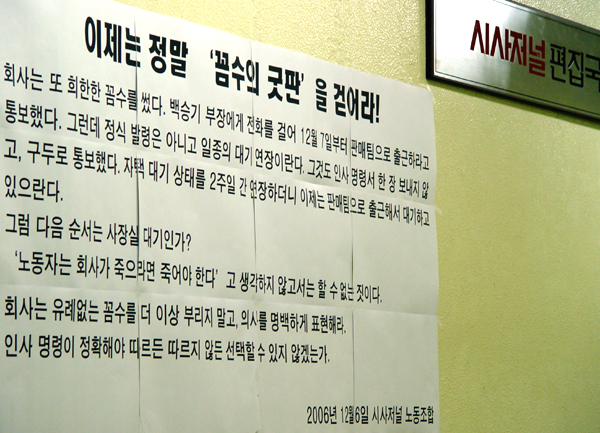 이제는 정말 '꼼수의 굿판'을 걷어라!
회사는 또 희한한 꼼수를 썼다. 백승기 부장에게 전화를 걸어 12월 7일부터 판매팀으로 출근하라고
통보했다. 그런데 정식 발령은 아니고 일종의 대기 연장이란다. 그것도 인사 명령서 한 장 보내지 않
고, 구두로 통보했다. 자택 대기 상태를 2주일 간 연장하더니 이제는 판매팀으로 출근해서 대기하고
있으란다.
그럼 다음 순서는 사장실 대기인가?
'노동자는 회사가 죽으라면 죽어야 한다' 고 생각하지 않고서는 할 수 없는 짓이다.
회사는 유례없는 꼼수를 더 이상 부리지 말고, 의시를 명백하게 표현해라.
인사 명령이 정확해야 따르든 따르지 않든 선택할 수 있지 않겠는가.
2006년 12월6일 시사저널 노동조합
시사저널 편집국